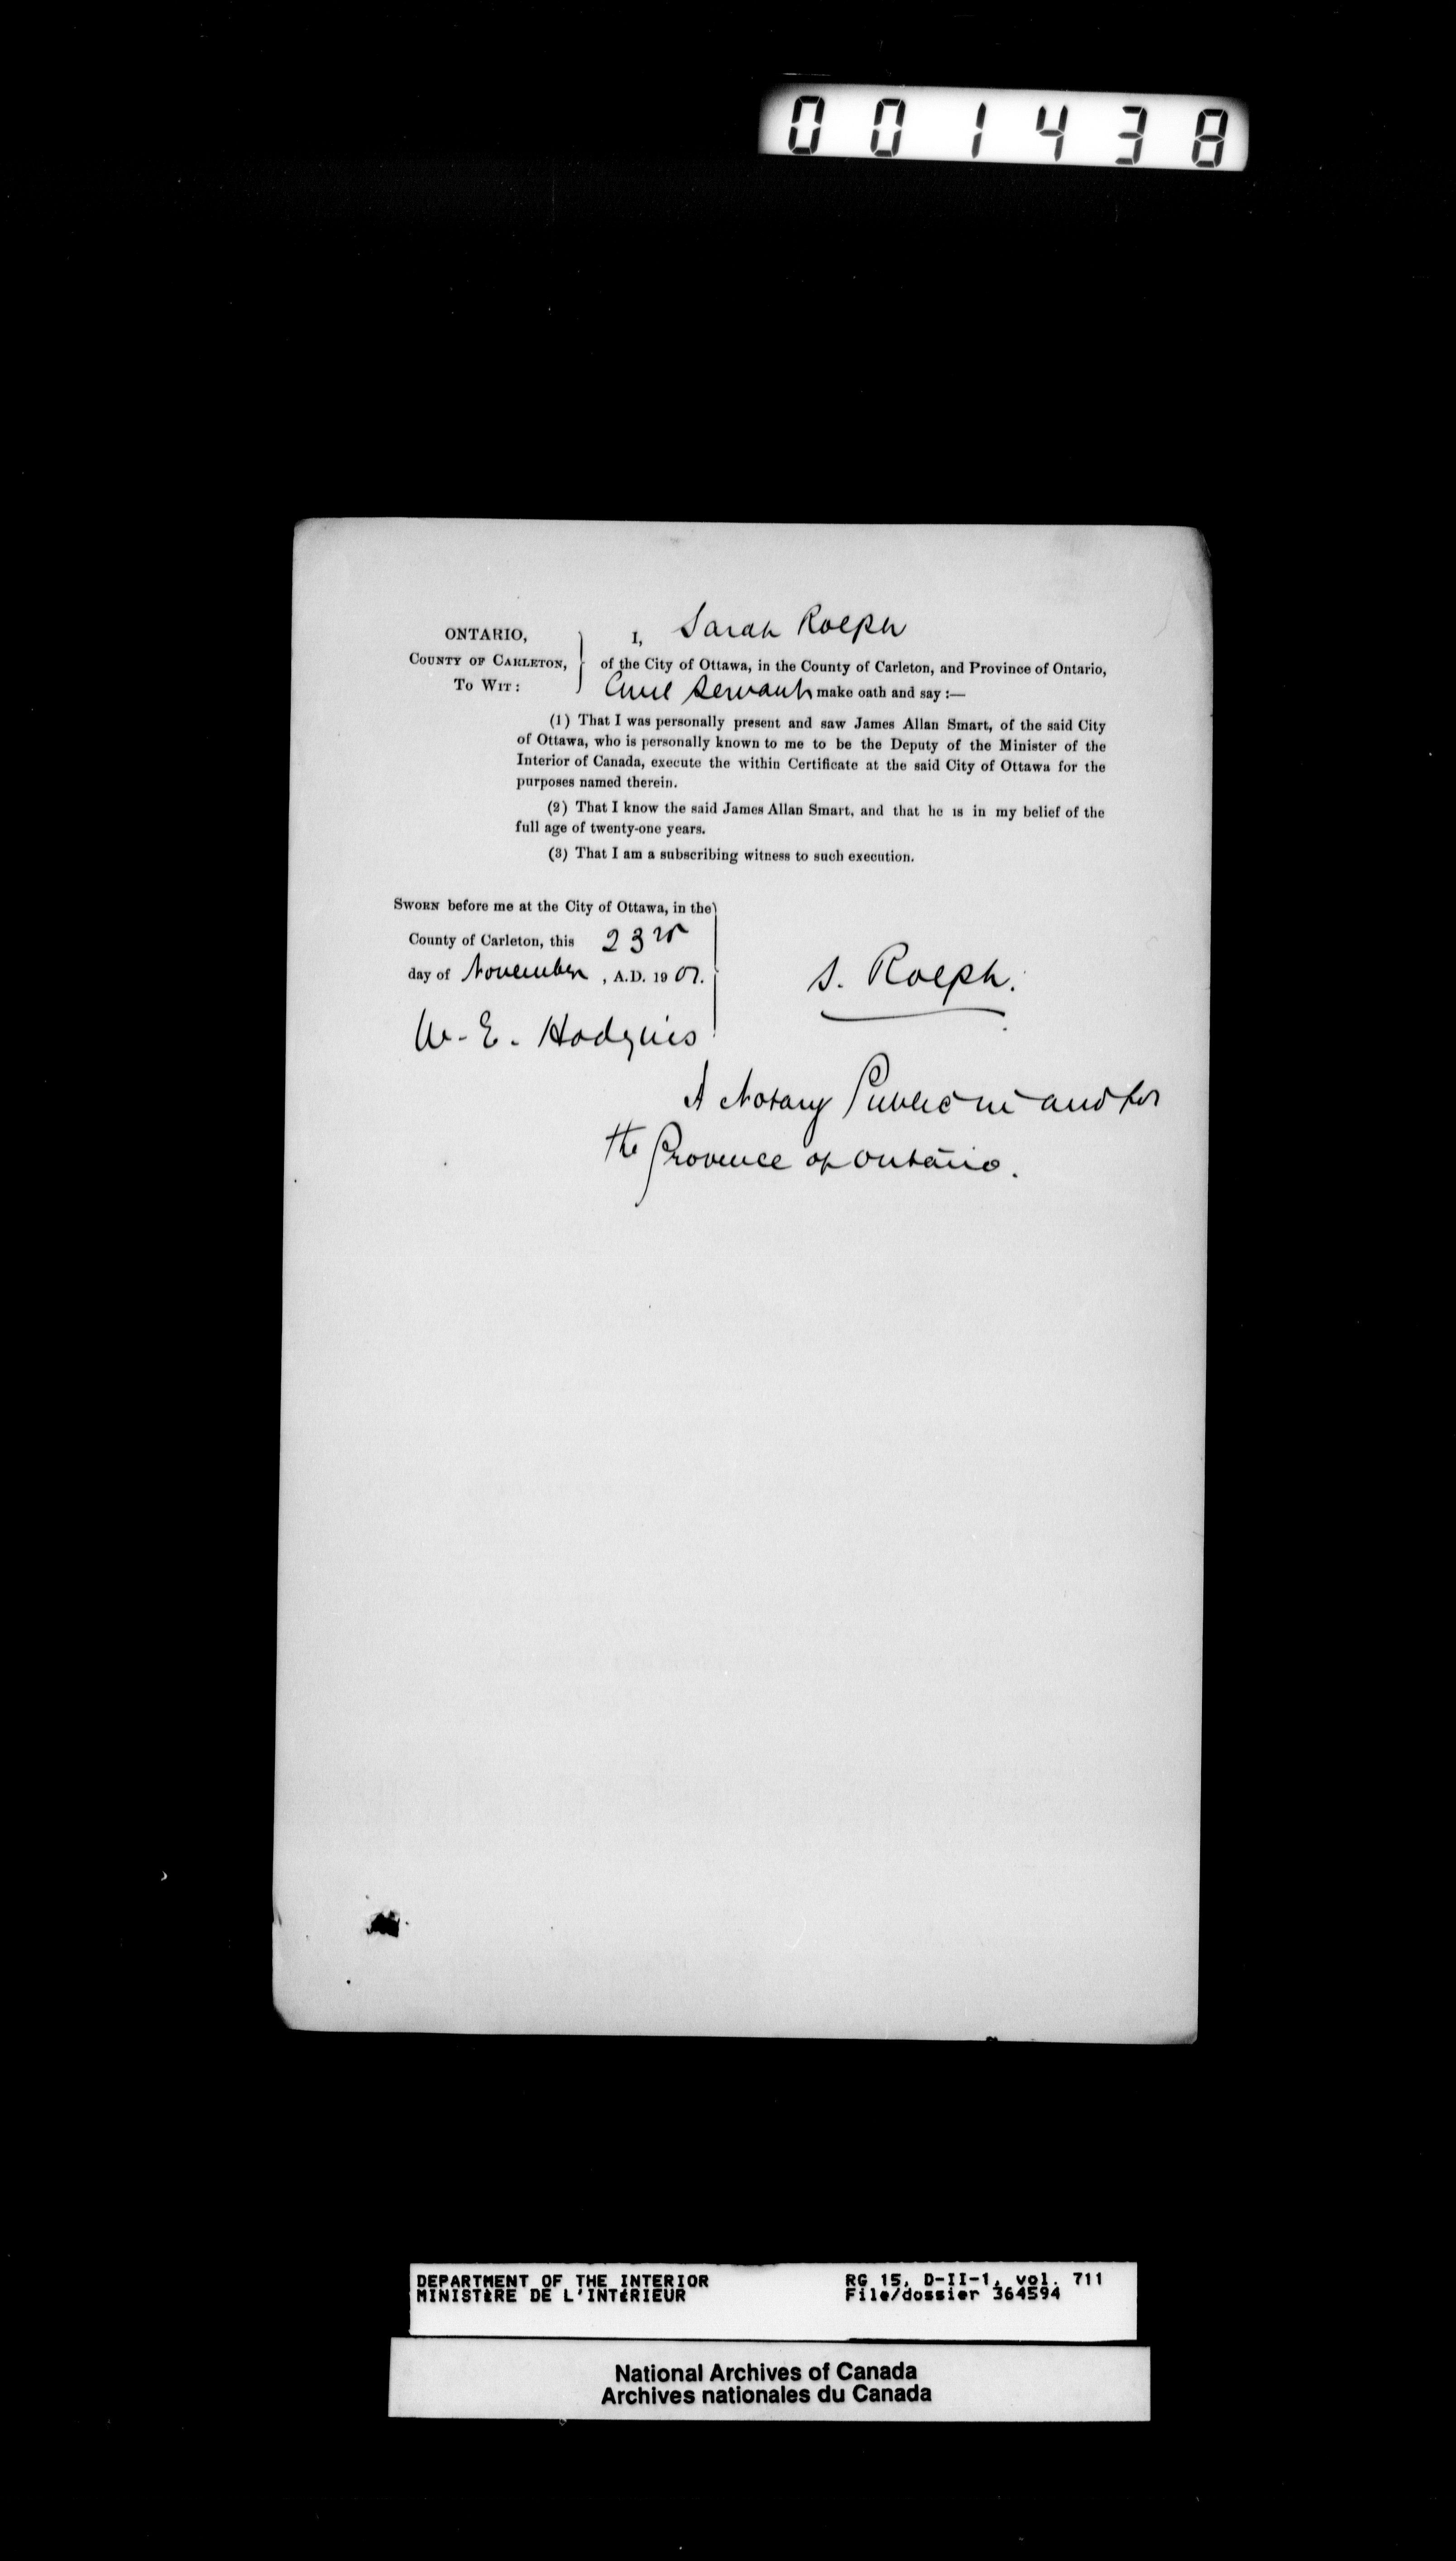 001438
ONTARIO,
COUNTY OF CARLETON,
TO WIT:
I, Sarah Rolph
of the City of Ottawa, in the County of Carleton, and Province of Ontario,
Civil Servant make oath and say :—
(1) That I was personally present and saw James Allan Smart, of the said City
of Ottawa, who is personally known to me to be the Deputy of the Minister of the
Interior of Canada, execute the within Certificate at the said City of Ottawa for the
purposes named therein.
(2) That I know the said James Allan Smart, and that he is in my belief of the
full age of twenty-one years.
(3) That I am a subscribing witness to such execution.
SWORN before me at the City of Ottawa, in the
County of Carleton, this 23rd
day of November, A.D. 1901.
S. Rolph.
W. E. Hodgins
A Notary Public in and for
the Province of Ontario.
DEPARTMENT OF THE INTERIOR
MINISTÈRE DE L'INTÉRIEUR
RG 15, D-II-1, vol. 711
File/dossier 364594
National Archives of Canada
Archives nationales du Canada